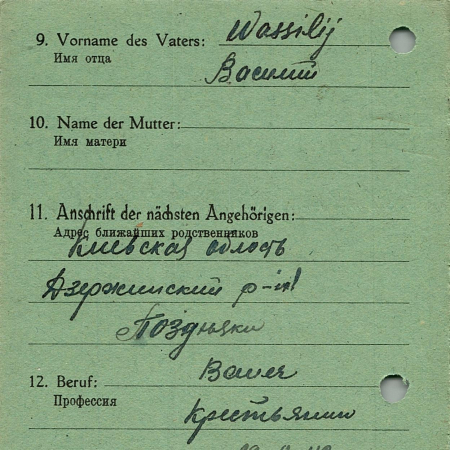 9. Vorname des Vaters: Wassilij
Имя отца
Василий
10. Name der Mutter:
Имя матери
11. Anschrift der nächsten Angehörigen:
Адрес ближайших родственников
Киевская область
Дзержинский р-н
Поздняки
12. Beruf: Bauer
Профессия
Крестьянин